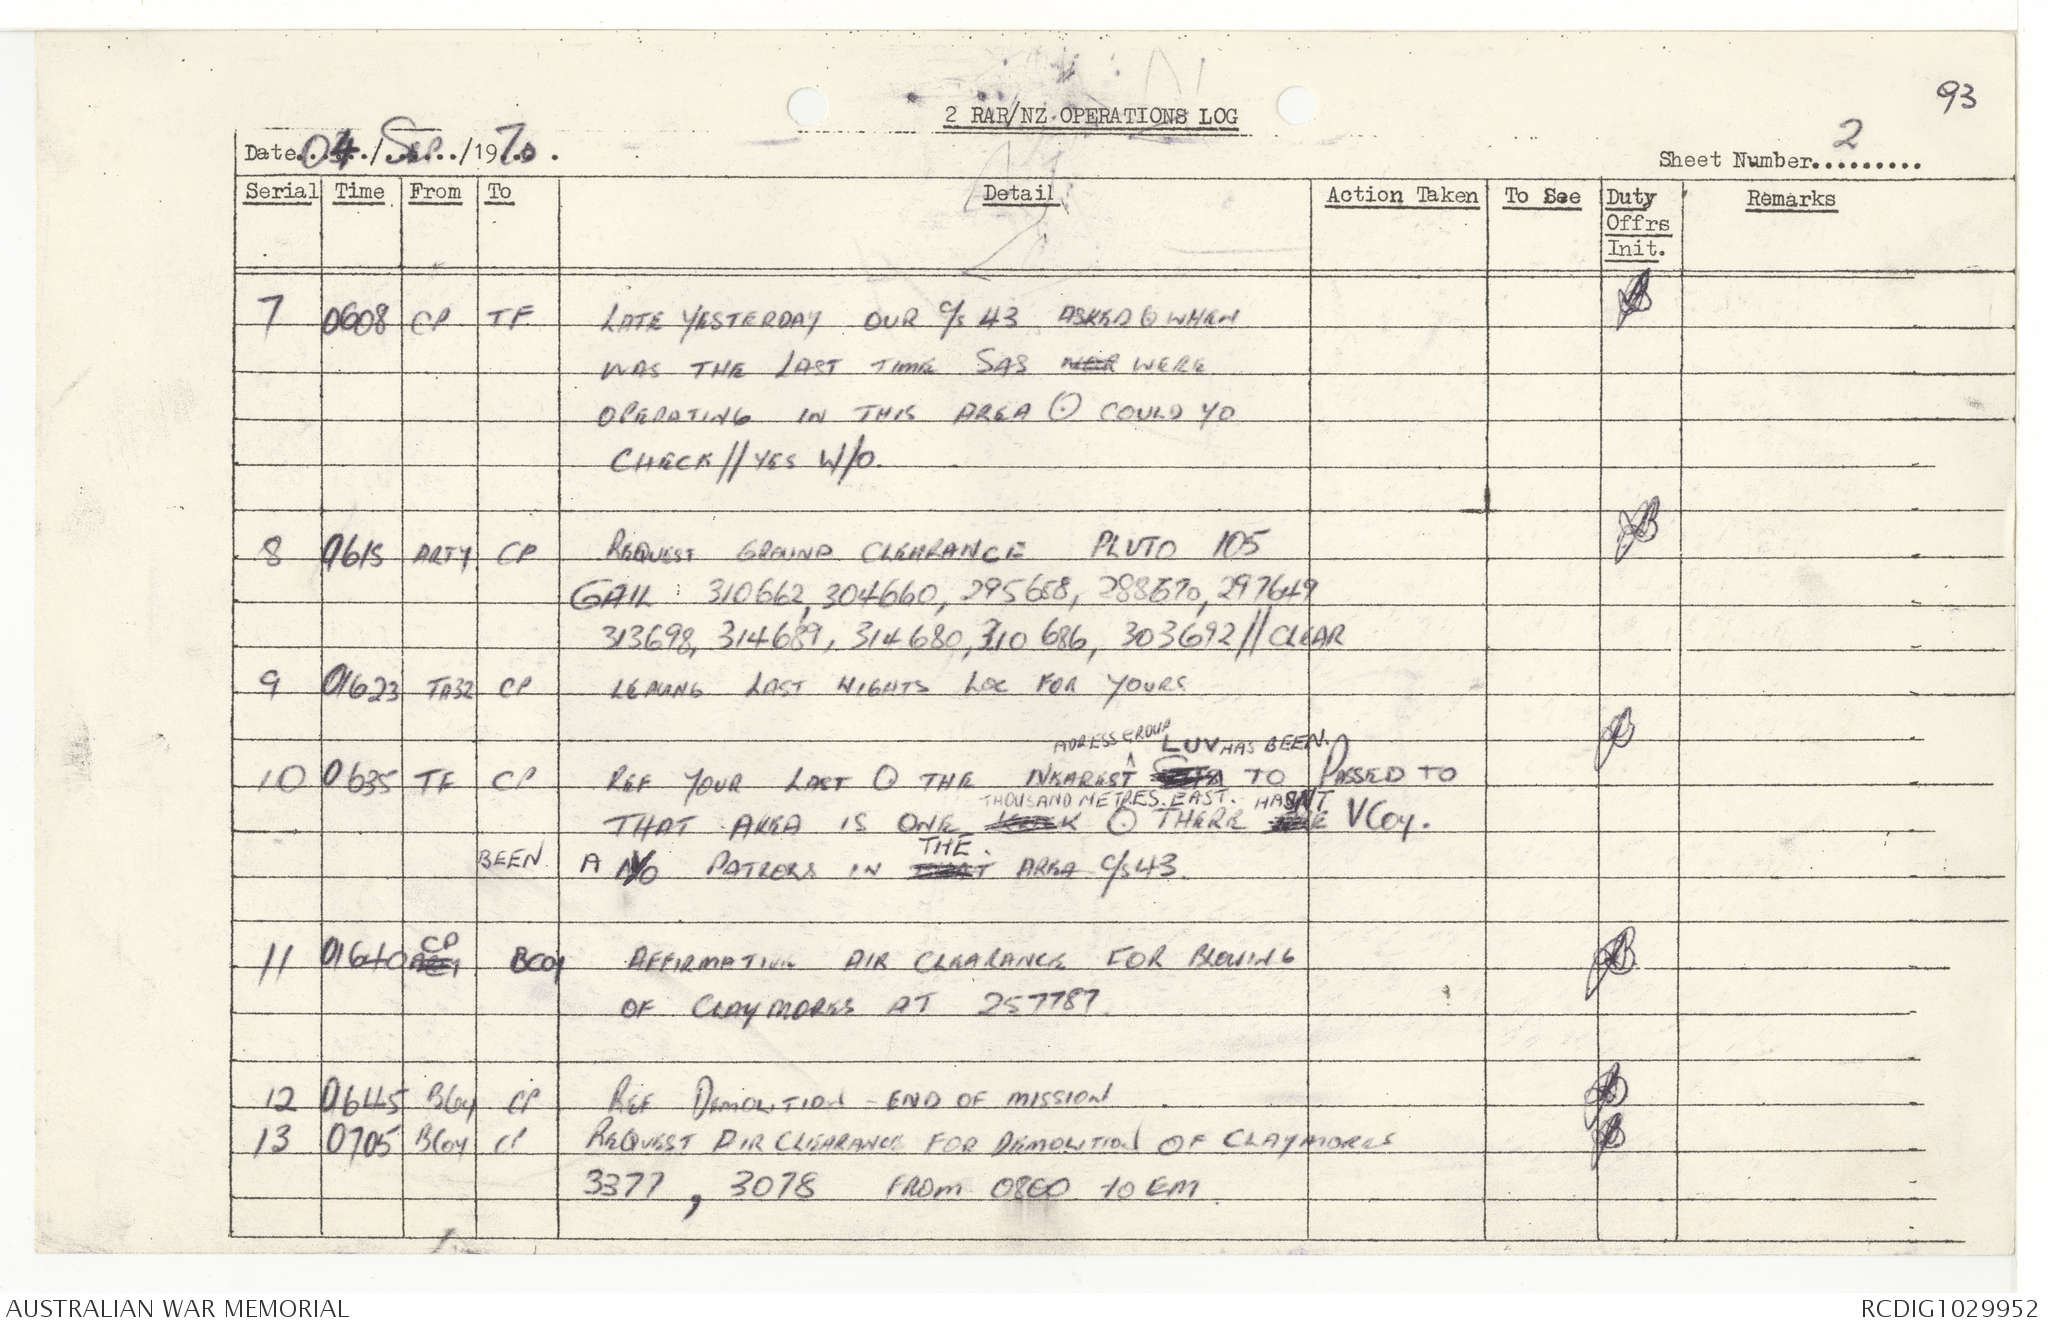 93
2 RAR/NZ OPERATIONS LOG
Date 04/Sep/1970.
Sheet Number 2
Serial Time From To Detail Action Taken To See Duty Offrs Init. Remarks
7 0608 CP TF LATE YESTERDAY OUR C/S 43 ASKED ⊙ WHEN
WAS THE LAST TIME SAS WERE
OPERATING IN THIS AREA ⊙ COULD YO
CHECK // YES W/O.
8 0615 ARTY CP REQUEST GROUND CLEARANCE PLUTO 105
GAIL : 310662, 304660, 295658, 288670, 297649
313698, 314689, 314680, 310686, 303692 // CLEAR
9 0623 TA32 CP LEAVING LAST NIGHTS LOC FOR YOURS
ADRESS GROUP LUV HAS BEEN.
10 0635 TF CP REF YOUR LAST ⊙ THE NEAREST TO PASSED TO
THOUSAND METRES. EAST. HASN'T
THAT AREA IS ONE ⊙ THERE V Coy.
THE.
BEEN A PATROLS IN AREA C/S 43.
CP
11 0640 BCOY AFFIRMATIVE AIR CLEARANCE FOR BLOWING
OF CLAYMORES AT 257787.
12 0645 BCoy CP REF DEMOLITION - END OF MISSION
13 0705 BCoy CP REQUEST AIR CLEARANCE FOR DEMOLITION OF CLAYMORES
3377, 3078 FROM 0800 to EM.
AUSTRALIAN WAR MEMORIAL
RCDIG1029952